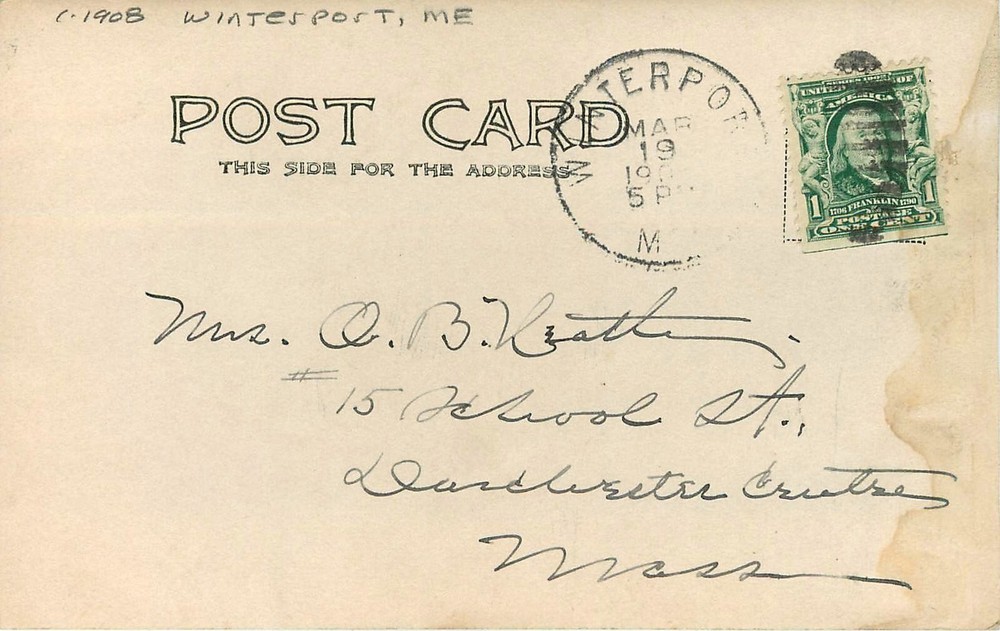 c.1908 WINTERPORT, ME
POST CARD
THIS SIDE FOR THE ADDRESS
WINTERPOR
MAR
19
190
5 P
M
SERIES 1902
UNITED STATES OF
AMERICA
1 1706 FRANKLIN 1790 1
POSTAGE
ONE CENT
Mrs. O. B.
15 School St.,
Dorchester Centre
Mass